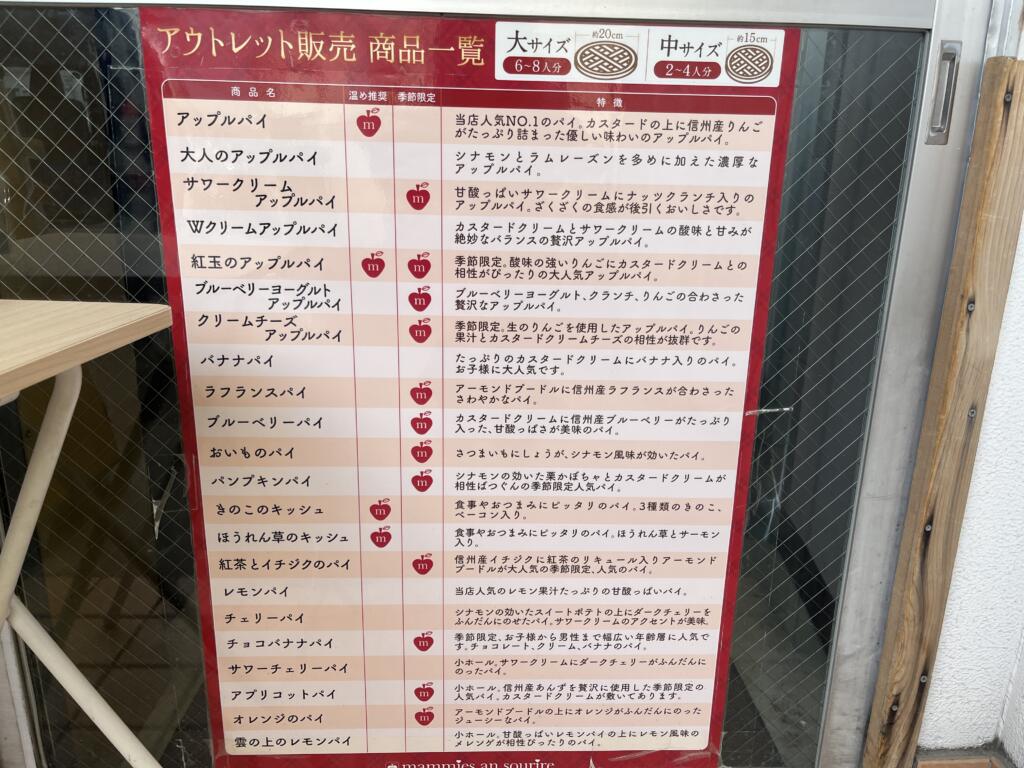 アウトレット販売 商品一覧
大サイズ 約20cm 6~8人分
中サイズ 約15cm 2~4人分
商品名 温め推奨 季節限定 特徴
アップルパイ m 当店人気NO.1のパイ。カスタードの上に信州産りんご
がたっぷり詰まった優しい味わいのアップルパイ。
大人のアップルパイ シナモンとラムレーズンを多めに加えた濃厚な
アップルパイ。
サワークリーム
アップルパイ m 甘酸っぱいサワークリームにナッツクランチ入りの
アップルパイ。ざくざくの食感が後引くおいしさです。
Wクリームアップルパイ カスタードクリームとサワークリームの酸味と甘みが
絶妙なバランスの贅沢アップルパイ。
紅玉のアップルパイ m m 季節限定。酸味の強いりんごにカスタードクリームとの
相性がぴったりの大人気アップルパイ。
ブルーベリーヨーグルト
アップルパイ m ブルーベリーヨーグルト、クランチ、りんごの合わさった
贅沢なアップルパイ。
クリームチーズ
アップルパイ m 季節限定。生のりんごを使用したアップルパイ。りんごの
果汁とカスタードクリームチーズの相性が抜群です。
バナナパイ たっぷりのカスタードクリームにバナナ入りのパイ。
お子様に大人気です。
ラフランスパイ m アーモンドプードルに信州産ラフランスが合わさった
さわやかなパイ。
ブルーベリーパイ m カスタードクリームに信州産ブルーベリーがたっぷり
入った、甘酸っぱさが美味のパイ。
おいものパイ m さつまいもにしょうが、シナモン風味が効いたパイ。
パンプキンパイ m シナモンの効いた栗かぼちゃとカスタードクリームが
相性ばつぐんの季節限定人気パイ。
きのこのキッシュ m 食事やおつまみにピッタリのパイ。3種類のきのこ、
ベーコン入り。
ほうれん草のキッシュ m 食事やおつまみにピッタリのパイ。ほうれん草とサーモン
入り。
紅茶とイチジクのパイ m 信州産イチジクに紅茶のリキュール入りアーモンド
プードルが大人気の季節限定、人気のパイ。
レモンパイ 当店人気のレモン果汁たっぷりの甘酸っぱいパイ。
チェリーパイ シナモンの効いたスイートポテトの上にダークチェリーを
ふんだんにのせたパイ。サワークリームのアクセントが美味。
チョコバナナパイ m 季節限定、お子様から男性まで幅広い年齢層に人気で
す。チョコレート、クリーム、バナナのパイ。
サワーチェリーパイ 小ホール。サワークリームにダークチェリーがふんだんに
のったパイ。
アプリコットパイ m 小ホール。信州産あんずを贅沢に使用した季節限定の
人気パイ。カスタードクリームが敷いてあります。
オレンジのパイ m アーモンドプードルの上にオレンジがふんだんにのった
ジューシーなパイ。
雲の上のレモンパイ 小ホール。甘酸っぱいレモンパイの上にレモン風味の
メレンゲが相性ぴったりのパイ。
mammies an sourire